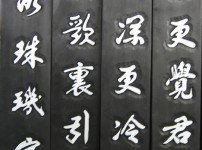 更覺君
深更冷
歌裏引
珠璣字